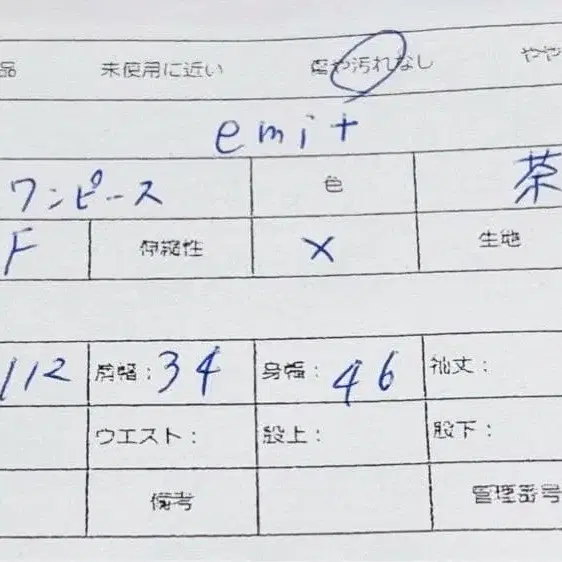 品 未使用に近い 傷や汚れなし やや
emit
ワンピース 色 茶
F 伸縮性 × 生地
112 肩幅：34 身幅：46 袖丈：
ウエスト： 股上： 股下：
備考 管理番号